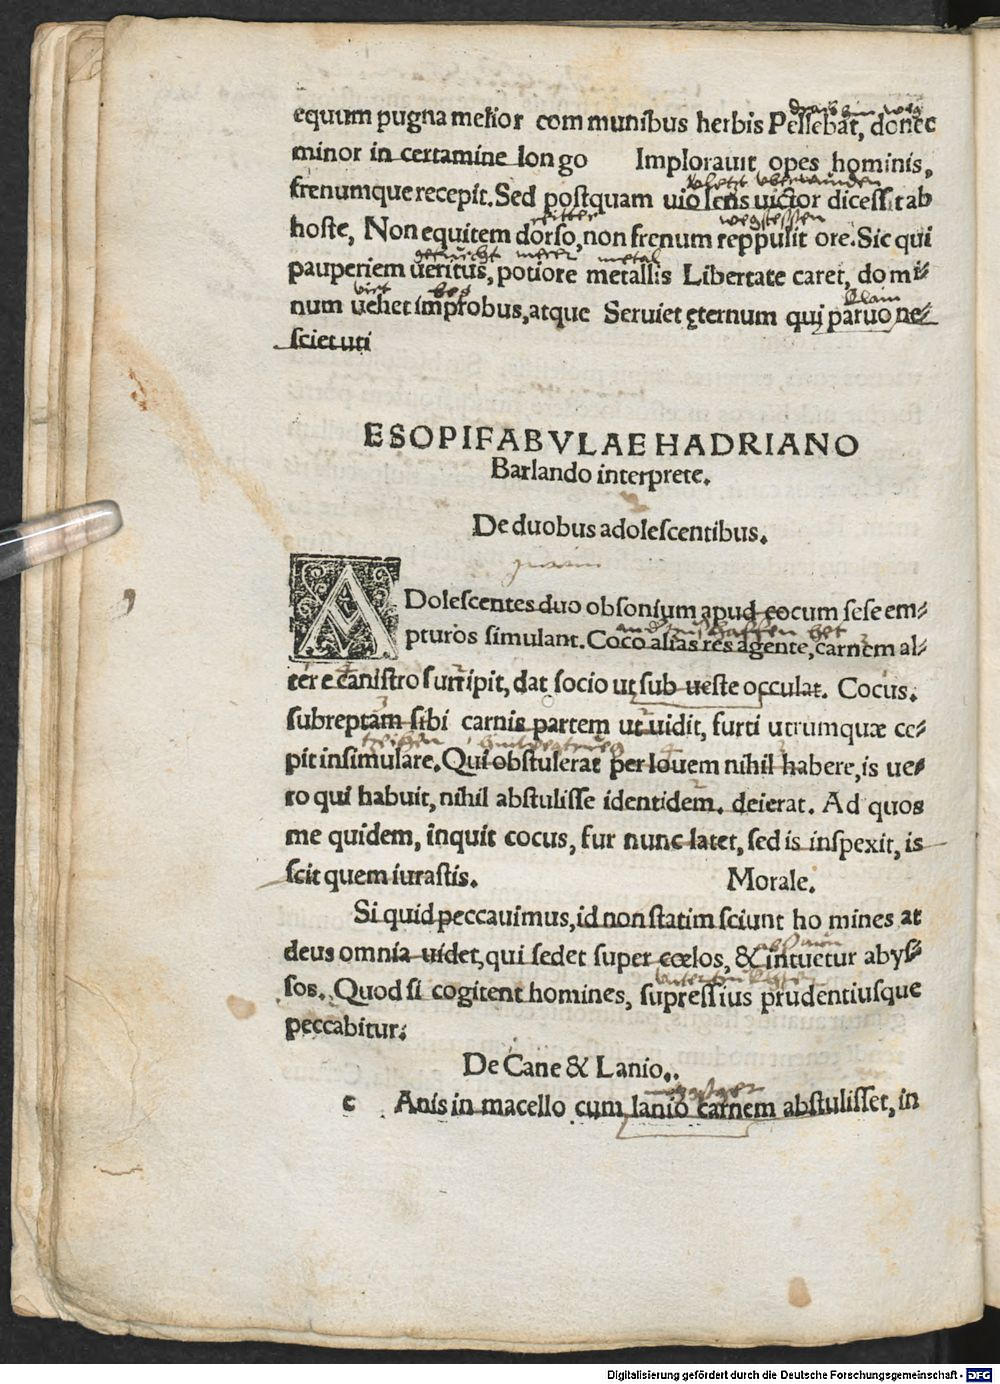 equum pugna melior communibus herbis Pellebat, donec
minor in certamine longo Implorauit opes hominis,
frenumque recepit. Sed postquam uiolens uictor dicessit ab
hoste, Non equitem dorso, non frenum reppulit ore. Sic qui
pauperiem ueritus, potiore metallis Libertate caret, domi⸗
num uehet improbus, atque Seruiet ęternum qui paruo ne⸗
sciet uti
ESOPI FABVLAE HADRIANO
Barlando interprete.
De duobus adolescentibus.
ADolescentes duo obsonium apud cocum sese em⸗
pturos simulant. Coco alias res agente, carnem al⸗
ter e canistro surripit, dat socio ut sub ueste occulat. Cocus.
subreptam sibi carnis partem ut uidit, furti utrumquæ cę⸗
pit insimulare. Qui obstulerat per Iouem nihil habere, is ue⸗
ro qui habuit, nihil abstulisse identidem. deierat. Ad quos
me quidem, inquit cocus, fur nunc latet, sed is inspexit, is
scit quem iurastis. Morale.
Si quid peccauimus, id non statim sciunt homines at
deus omnia uidet, qui sedet super cœlos, & intuetur abys⸗
sos. Quod si cogitent homines, supressius prudentiusque
peccabitur.
De Cane & Lanio..
c Anis in macello cum lanio carnem abstulisset, in
Digitalisierung gefördert durch die Deutsche Forschungsgemeinschaft - DFG